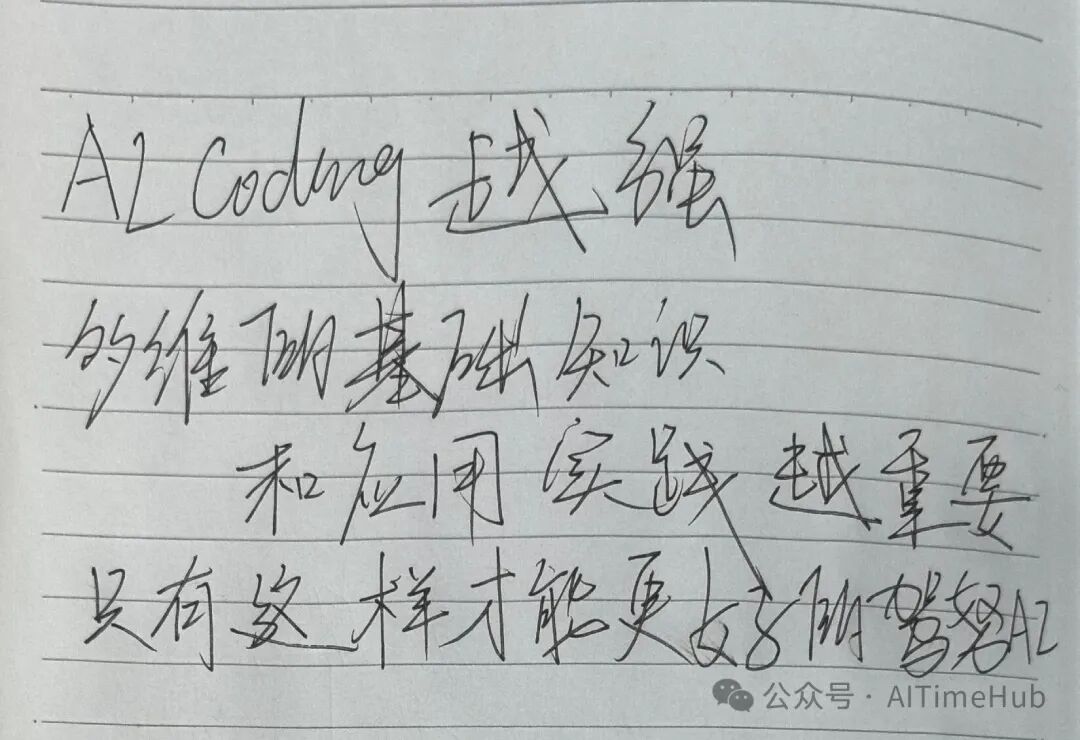 AI Coding 越强
多维的基础知识
和应用实践越重要
只有这样才能更好的驾驽AI
公众号 · AITimeHub